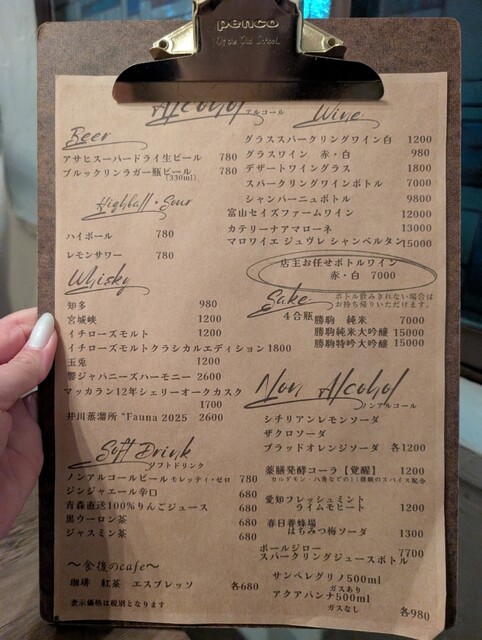 penco
Alcohol アルコール
Beer
アサヒスーパードライ生ビール 780
ブルックリンラガー瓶ビール 780
(330ml)
Highball・Sour
ハイボール 780
レモンサワー 780
Whisky
知多 980
宮城峡 1200
イチローズモルト 1200
イチローズモルトクラシカルエディション 1800
玉兎 1200
響ジャパニーズハーモニー 2600
マッカラン12年シェリーオークカスク
1700
井川蒸溜所 "Fauna 2025 2600
Soft Drink
ソフトドリンク
ノンアルコールビール モレッティ・ゼロ 780
ジンジャエール辛口 680
青森直送100%りんごジュース 680
黒ウーロン茶 680
ジャスミン茶 680
～食後のcafe～
珈琲 紅茶 エスプレッソ 各680
表示価格は税別となります
Wine
グラススパークリングワイン白 1200
グラスワイン 赤・白 980
デザートワイングラス 1800
スパークリングワインボトル 7000
シャンパーニュボトル 9800
富山セイズファームワイン 12000
カテリーナアマローネ 13000
マロワイエ ジュヴレ シャンベルタン 15000
店主お任せボトルワイン
赤・白 7000
ボトル飲みきれない場合は
お持ち帰りいただけます。
Sake
4合瓶
勝駒 純米 7000
勝駒純米大吟醸 15000
勝駒特吟大吟醸 15000
Non Alcohol
ノンアルコール
シチリアンレモンソーダ
ザクロソーダ
ブラッドオレンジソーダ 各1200
薬膳発酵コーラ【覚醒】 1200
カルダモン・八角などの11種類のスパイス配合
愛知フレッシュミント
ライムモヒート 1200
春日養蜂場
はちみつ梅ソーダ 1300
ポールジロー
スパークリングジュースボトル 7700
サンペレグリノ500ml
ガスあり
アクアパンナ500ml
ガスなし
各980